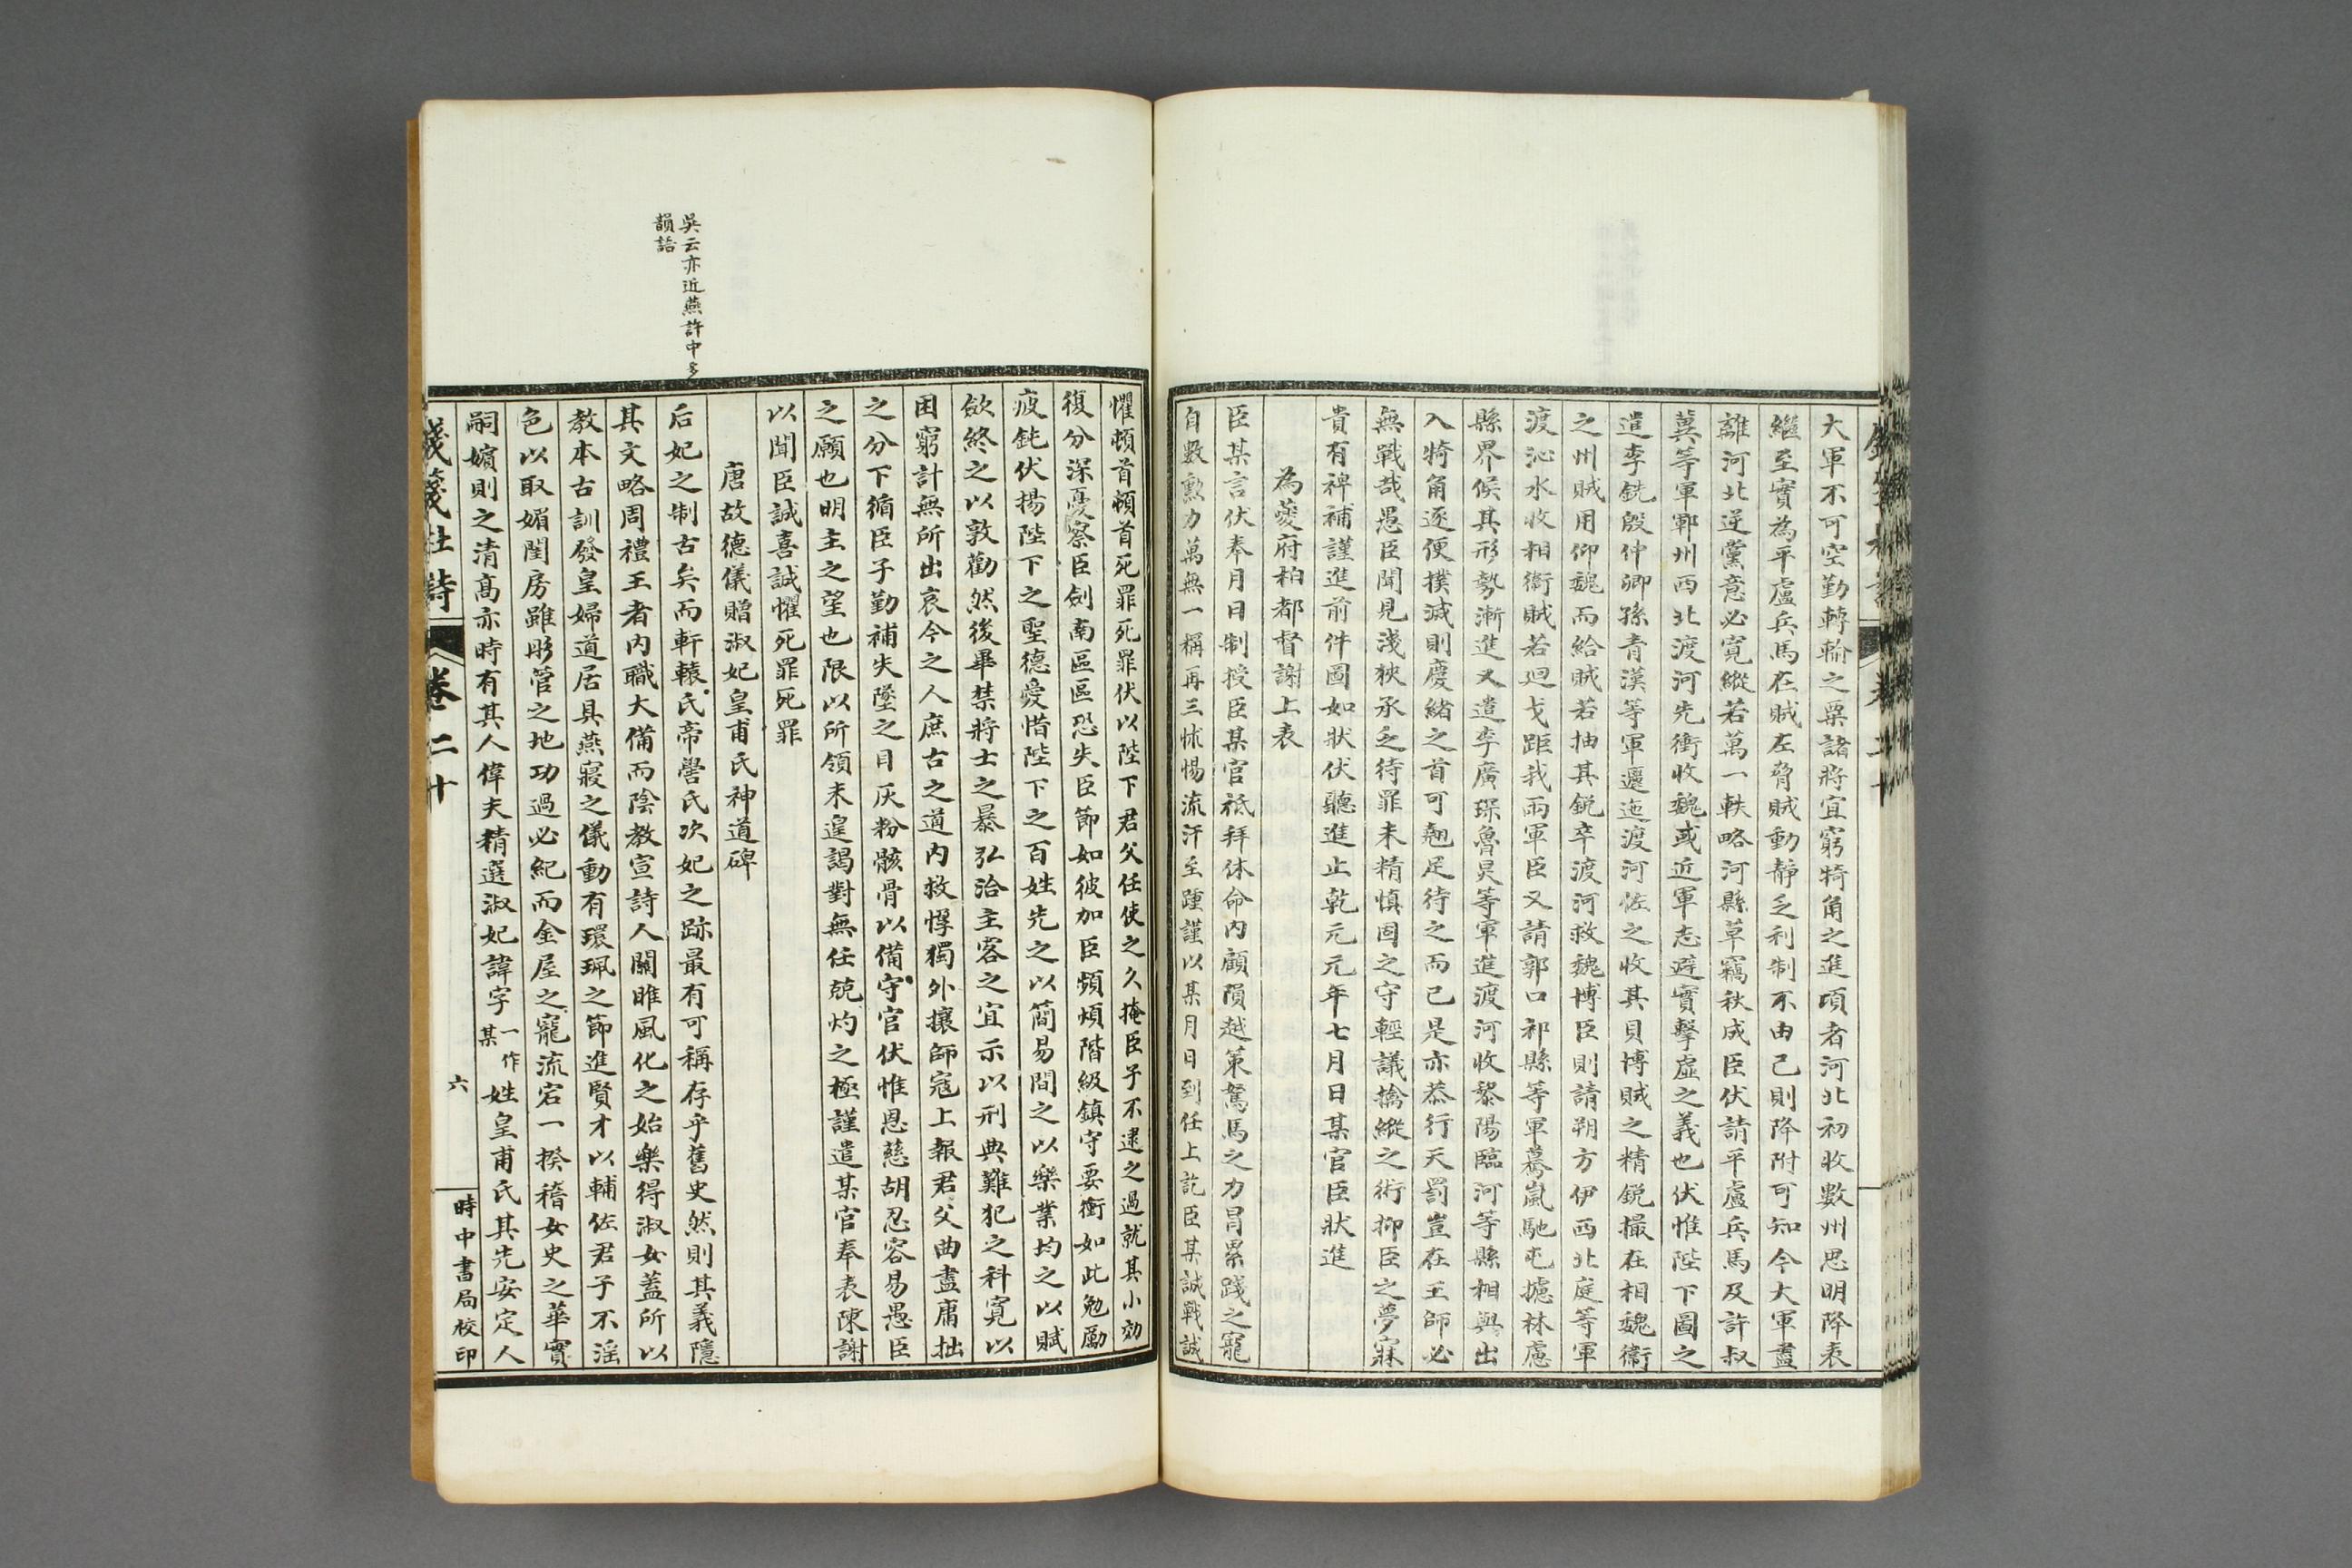 大軍不可空勤轉輸之粟諸將宜窮犄角之進項者河北初收數州思明降表
繼至實為平盧兵馬在賊左脅賊動靜乏利制不由己則降附可知今大軍盡
離河北逆黨意必寬縱若萬一軼略河縣草竊秋成臣伏請平盧兵馬及許叔
冀等軍鄆州西北渡河先衝收魏或近軍志避實擊虛之義也伏惟陛下圖之
遣李銑殷仲卿孫青漢等軍邐迤渡河佐之收其貝博賊之精銳撮在相魏衞
之州賊用仰魏而給賊若抽其銳卒渡河救魏博臣則請朔方伊西北庭等軍
渡沁水收相衞賊若迴戈距我兩軍臣又請郭口祁縣等軍驀嵐馳屯據林慮
縣界候其形勢漸進又遣李廣琛魯炅等軍進渡河收黎陽臨河等縣相與出
入犄角逐便撲滅則慶緒之首可翹足待之而已是亦恭行天罰豈在王師必
無戰哉愚臣聞見淺狹承乏待罪未精慎固之守輕議擒縱之術抑臣之夢寐
貴有裨補謹進前件圖如狀伏聽進止乾元元年七月日某官臣狀進
為夔府柏都督謝上表
臣某言伏奉月日制授臣某官祗拜休命內顧隕越策駑馬之力冒累踐之寵
自數勳力萬無一稱再三怵惕流汗至踵謹以某月日到任上訖臣某誠戰誠
懼頓首頓首死罪死罪伏以陛下君父任使之久掩臣子不逮之過就其小効
復分深憂察臣劍南區區恐失臣節如彼加臣頻煩階級鎮守要衝如此勉勵
疲鈍伏揚陛下之聖德愛惜陛下之百姓先之以簡易間之以樂業均之以賦
斂終之以敦勸然後畢禁將士之暴弘洽主客之宜示以刑典難犯之科寬以
困窮計無所出哀今之人庶古之道內救惸獨外攘師寇上報君父曲盡庸拙
之分下循臣子勤補失墜之目灰粉骸骨以備守官伏惟恩慈胡忍容易愚臣
之願也明主之望也限以所領未遑謁對無任兢灼之極謹遣某官奉表陳謝
以聞臣誠喜誠懼死罪死罪
唐故德儀贈淑妃皇甫氏神道碑
吳云亦近燕許中多
韻語
后妃之制古矣而軒轅氏帝嚳氏次妃之跡最有可稱存乎舊史然則其義隱
其文略周禮王者內職大備而陰教宣詩人關雎風化之始樂得淑女蓋所以
教本古訓發皇婦道居具燕寢之儀動有環珮之節進賢才以輔佐君子不淫
色以取媚閨房雖彤管之地功過必紀而金屋之寵流宕一揆稽女史之華實
嗣嬪則之清高亦時有其人偉夫精選淑妃諱字一作某姓皇甫氏其先安定人
錢箋杜詩 卷二十 六 時中書局校印